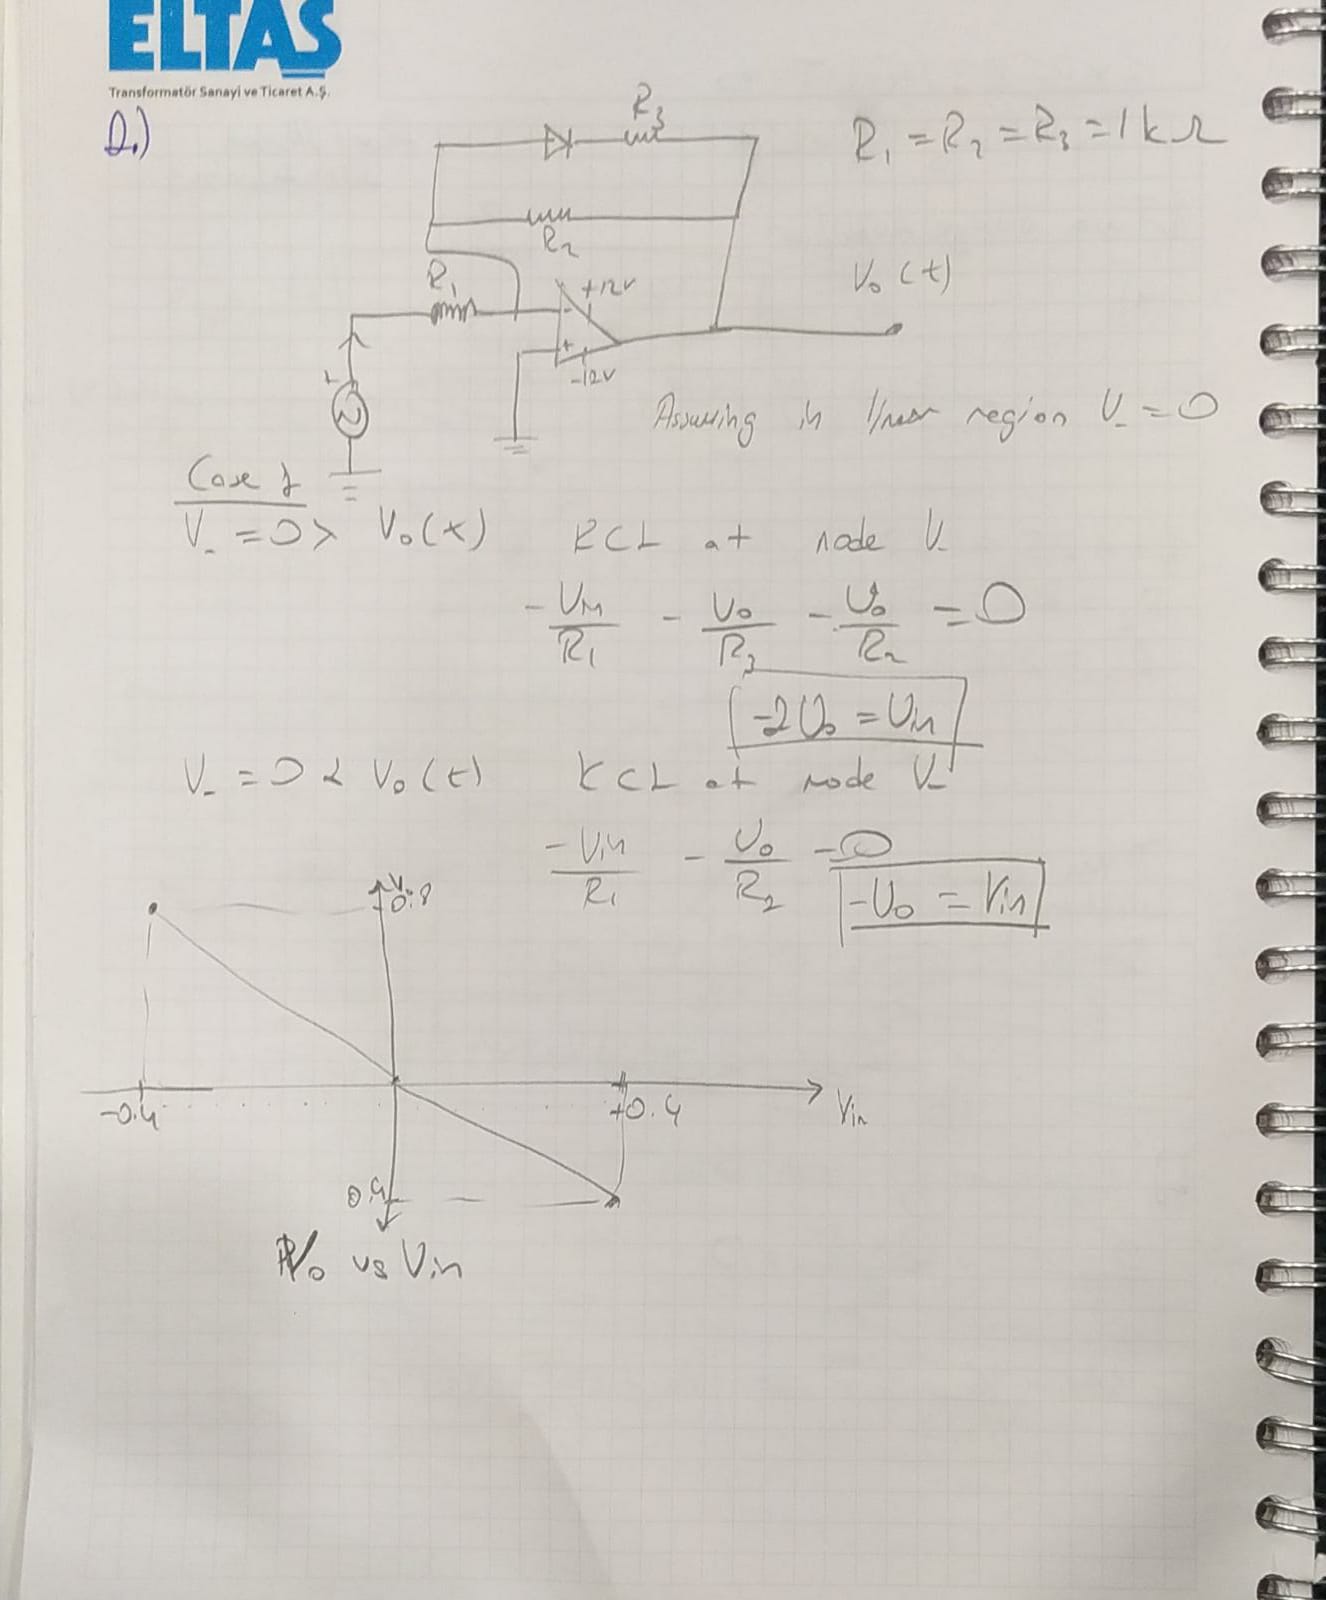 ELTAŞ
Transformatör Sanayi ve Ticaret A.Ş.
Q.)
R₃
R₁ = R₂ = R₃ = 1kΩ
R₂
R₁
+12V
V₀(t)
-
+
-12V
+
Assuming in linear region V₋ = 0
Case 1
V₋ = 0 > V₀(t) KCL at node V₋
-Vin/R₁ - V₀/R₃ - V₀/R₂ = 0
-2V₀ = Vin
V₋ = 0 < V₀(t) KCL at node V₋
-Vin/R₁ - V₀/R₂ = 0
-V₀ = Vin
V₀
0.8
-0.4
+0.4
Vin
0.4
V₀ vs Vin